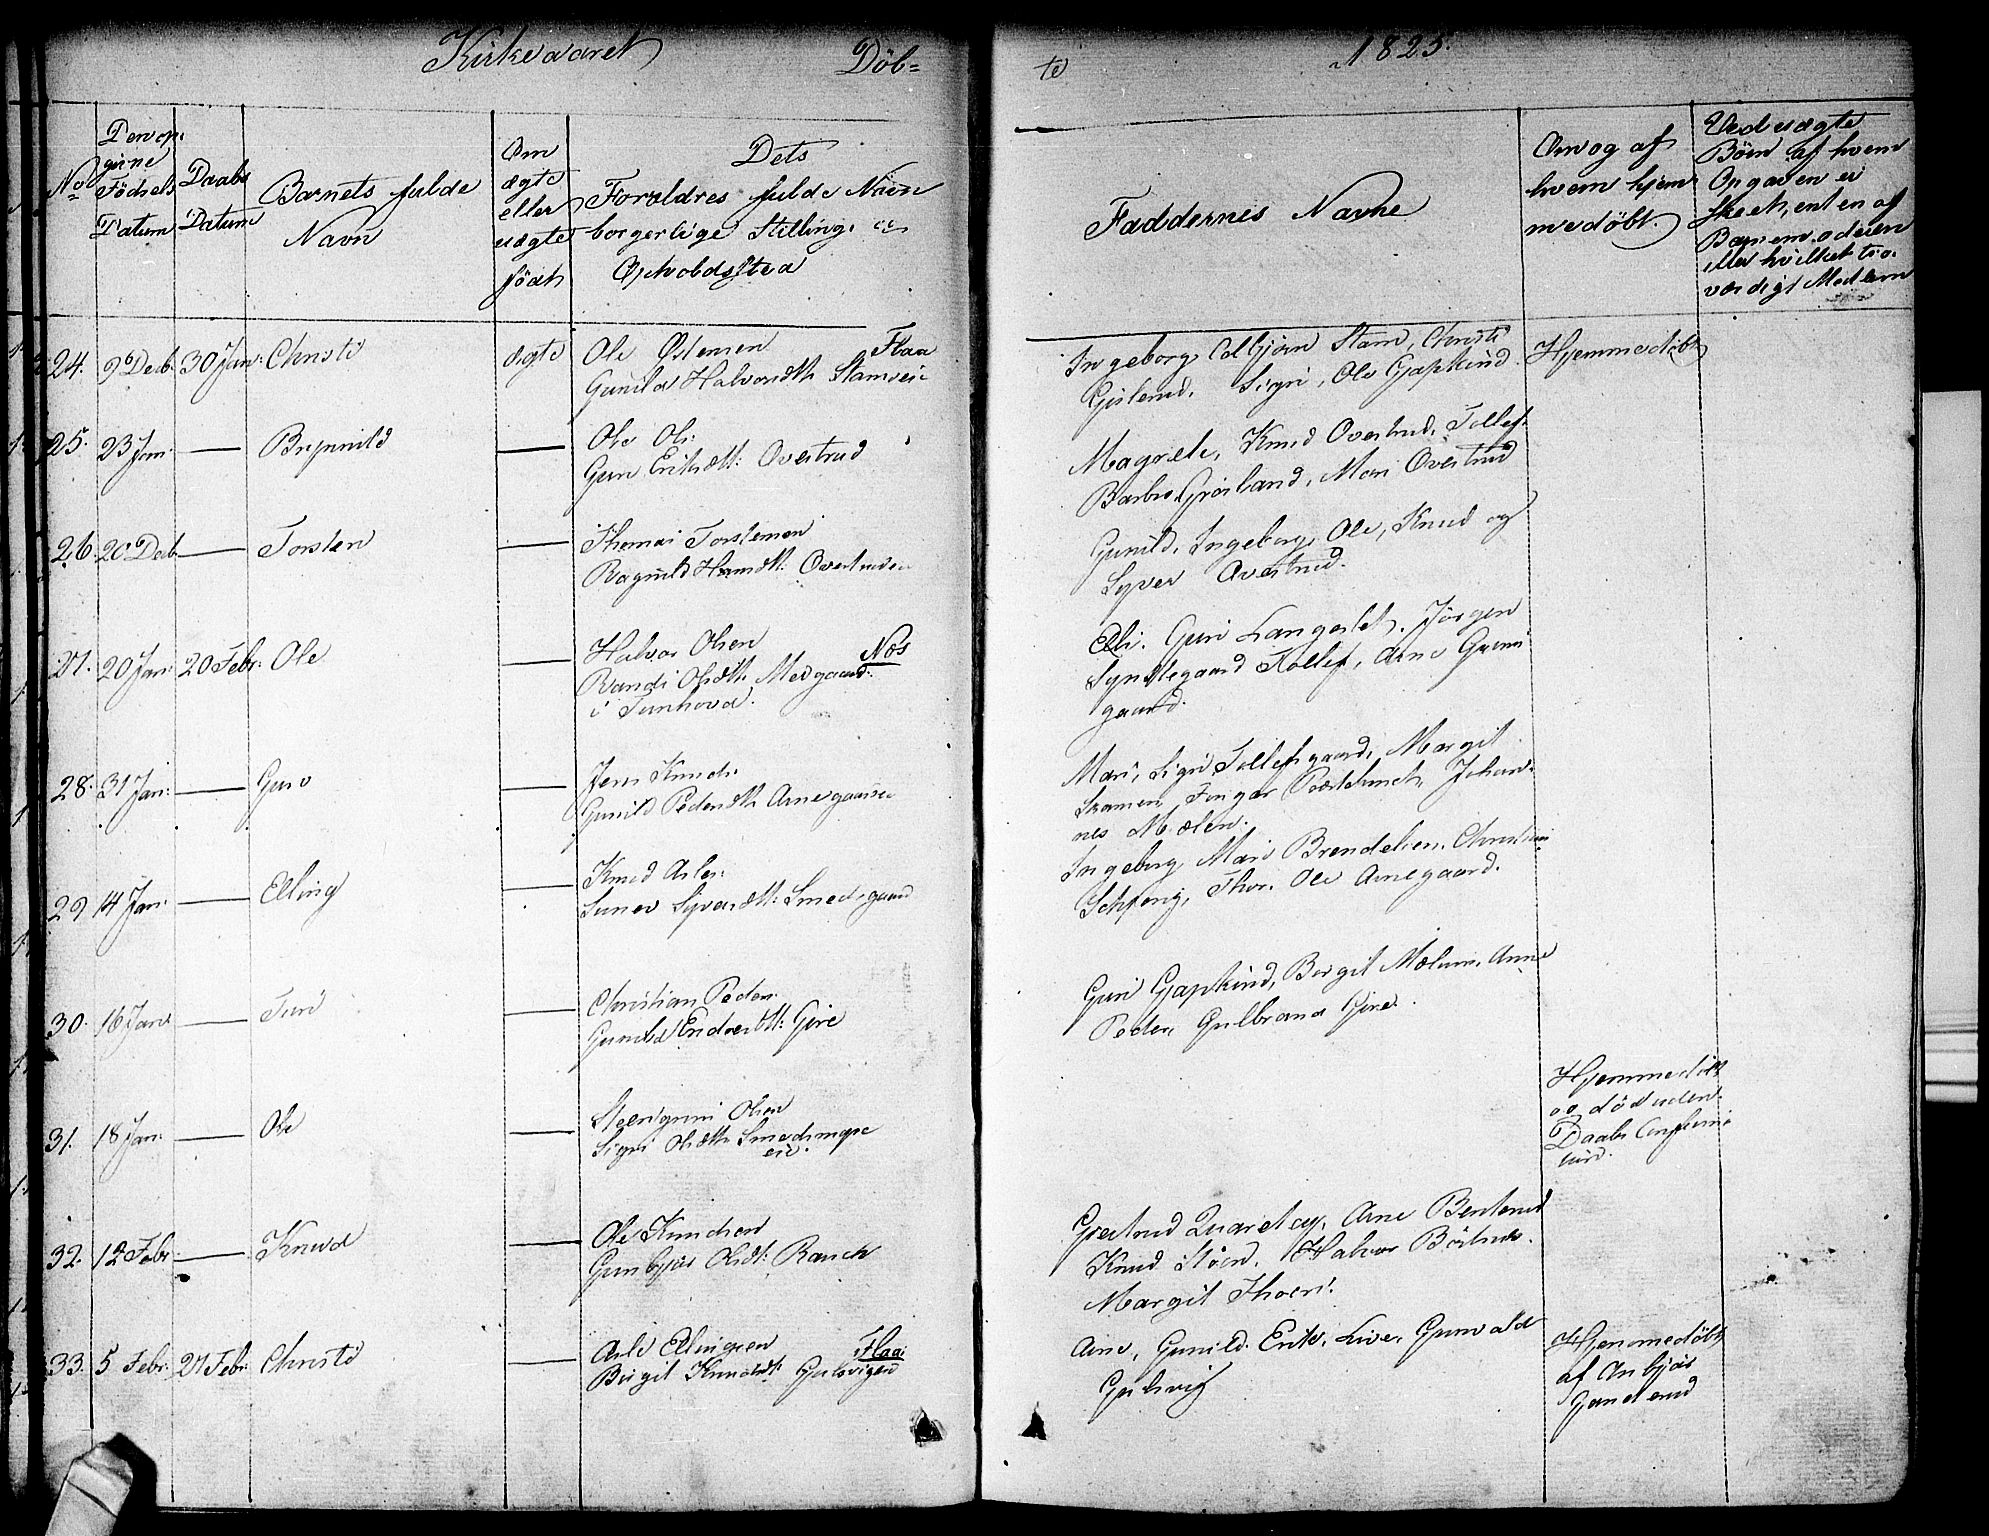 Kirkeaaret
Döb=
te
1825.
No
Den op.
givne
Födsels
Datum
Daabs
Datum
Barnets fulde
Navn
Om
ægte
eller
uægte
födt
Dets
Forældres fulde Navn
borgerlige Stilling. og
Opholdssted
Faddernes Navne
Om og af
hvem hjem
medöbt.
Ved uægte
Börn af hvem
Opgaven er
skeet, enten af
Barnemoderen
eller hvilket tro.
værdigt Medlem
24. 9 Decb. 30 Jan: Christi ægte Ole Østensen Flaa
Gunild Halvorsdtr.
Ingeborg, Colbjörn Stam, Christi
Gislerud. Sigri, Ole Gjapkind.
Hjemmedöbt
25. 23 Jan. — Brynnild — Ole Ols.
Guri Eriksdtt: Overtrud
Magrete, Knud Overtrud, Tollef.
Barbro Grösland, Mari Overtrud
26. 20 Decb — Torsten — Thomas Torstensen
Ragnild Hansdtt: Overtruden
Gunild, Ingeborg, Ole, Knud og
Syver Overtrud.
27. 20 Jan: 20 Febr: Ole — Halvor Olsen Næs
Randi Olsdtt. Medgaard.
i Tunhovd.
Eli. Guri Langeslet. Jörgen
Syndtegaard Tollef, Arne Grimsgaard.
28. 31 Jan: — Guro — Jens Knuds.
Gunild Pedersdtr. Arnegaard
Mari, Sigri Tollefsgaard, Margit
Skamen, Johannes Mælen.
29 14 Jan. — Elling — Knud Asles.
Syversdtt: Smedsgaard
Ingeborg, Mari Brendelsen, Christian
Thor. Ole Arnegaard.
30. 16 Jan. — Turi — Christian Peders.
Gunild Endresdtt: Gire
Guri Gjapkind, Birgit Mælum, Anne
Peder, Gulbrand Gire.
31. 18 Jan: — Ole — Steengrim Olsen
Sigri Olsdtr.
eie.
Hjemmedöbt
og död uden
Daabs Confirma
tion.
32. 12 Febr — Knud — Ole Knudsen
Gunbjör Olsdt: Ranch
Giertrud Arne Bentrud
Knud Stöen. Halvor Börtnes.
Margit Thoen.
33. 5 Febr: 27 Febr: Christi — Asle Ellingsen Flaa
Birgit Knudsdt: Gulsvigen
Arne, Gunild. Erik. Live. Gunvald
Gulsvig
Hjemmedöbt
af Anbjör
Gandrud